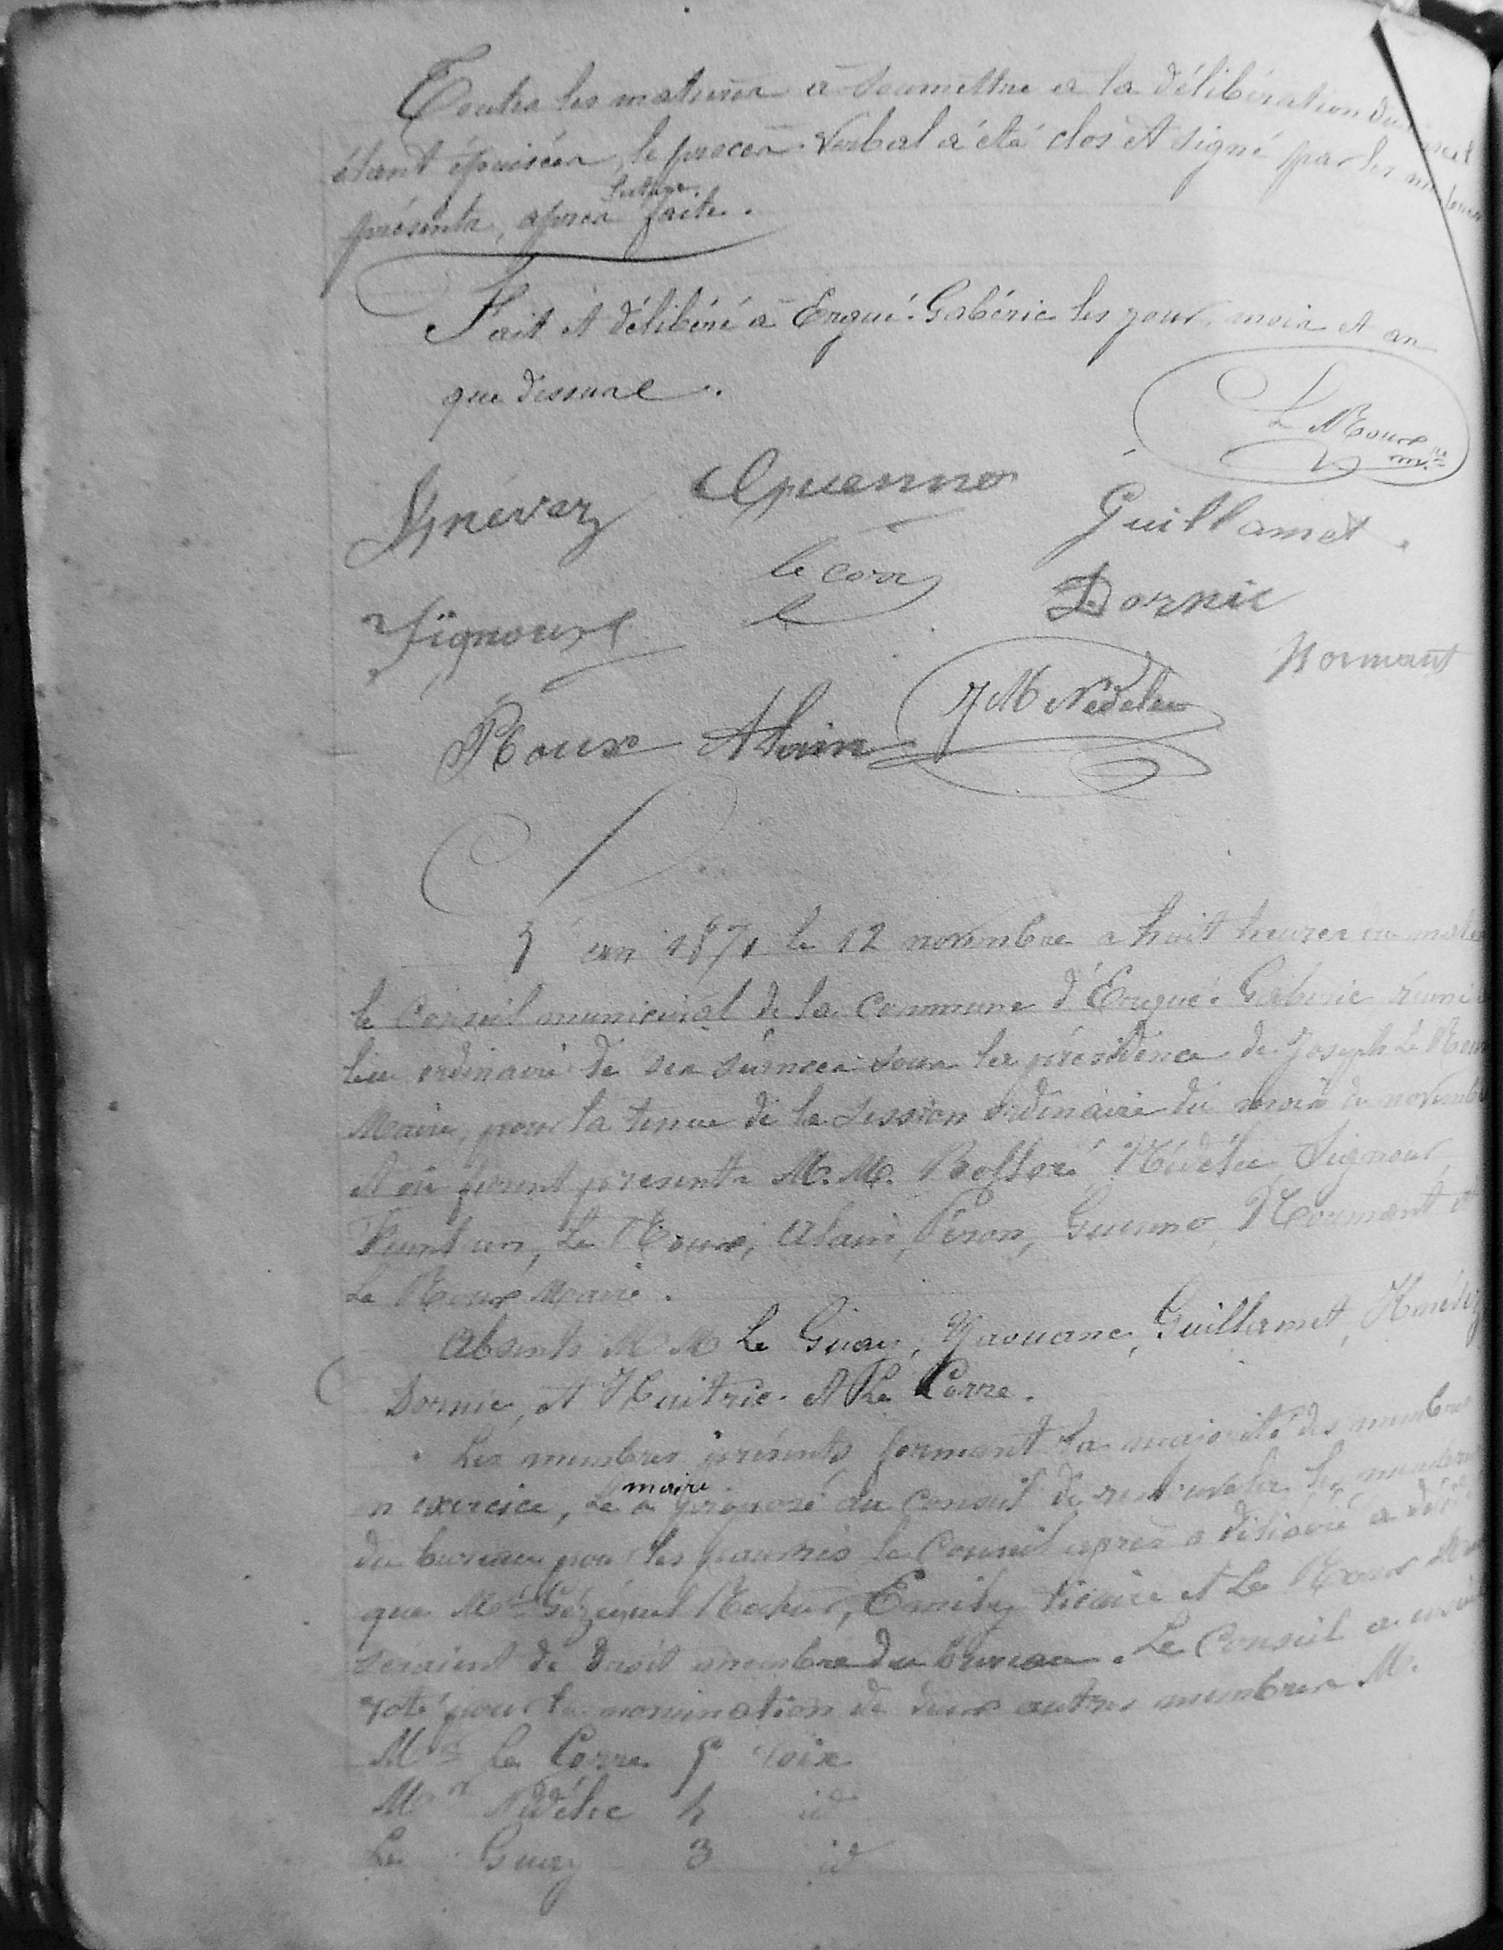 Toutes les matières à soumettre à la délibération du conseil
étant épuisées, le procès-verbal a été clos et signé par les membres
lecture
présents, après faite.
Fait et délibéré à Ergué-Gabéric les jour, mois et an
que dessus.
Le Roux
Hnévez Guenno
Guillamet.
le corr
Dornic
Signour
Normant
J M Nédelec
Roux Alain
L'an 1871 le 12 novembre a huit heures du matin
le Conseil municipal de la commune d'Ergué-Gabéric réuni
lieu ordinaire de ses séances sous la présidence de Joseph Le Roux
Maire, pour la tenue de la session ordinaire du mois de novembre
et où furent présents M.M. Nédélec Signour,
Le Roux, Alain, Péron, Guenno, Normant et
Le Roux Maire.
Absents M M Le Guay, Yaouanc, Guillamet, Hnévez
Dornic, et Huitric. et Le Corre.
Les membres présents formant la majorité des membres
maire
en exercice, Le a proposé au conseil de renouveler les membres
du bureau pour les pauvres le Conseil après a délibéré a
que Recteur, Emily vicaire et Le Roux Maire
seraient de droit membre du bureau. Le Conseil a ensuite
voté pour la nomination de deux autres membres M.
Mr Le Corre 5 voix
Mr Nédélec 4 id
Le Guay 3 id